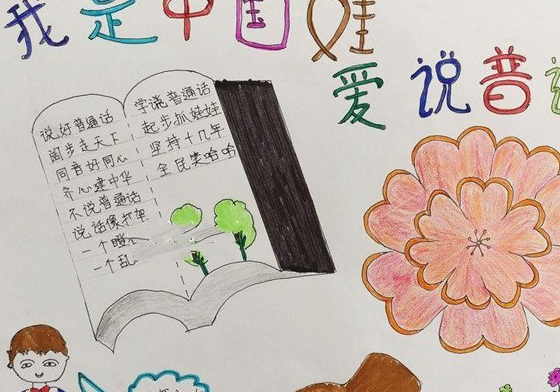 我是中国娃
爱说普
说好普通话
阔步走天下
同音好同心
齐心建中华
不说普通话
说话像打架
一个瞎
一个乱
学说普通话
起步抓娃娃
坚持十几年
全民笑哈哈